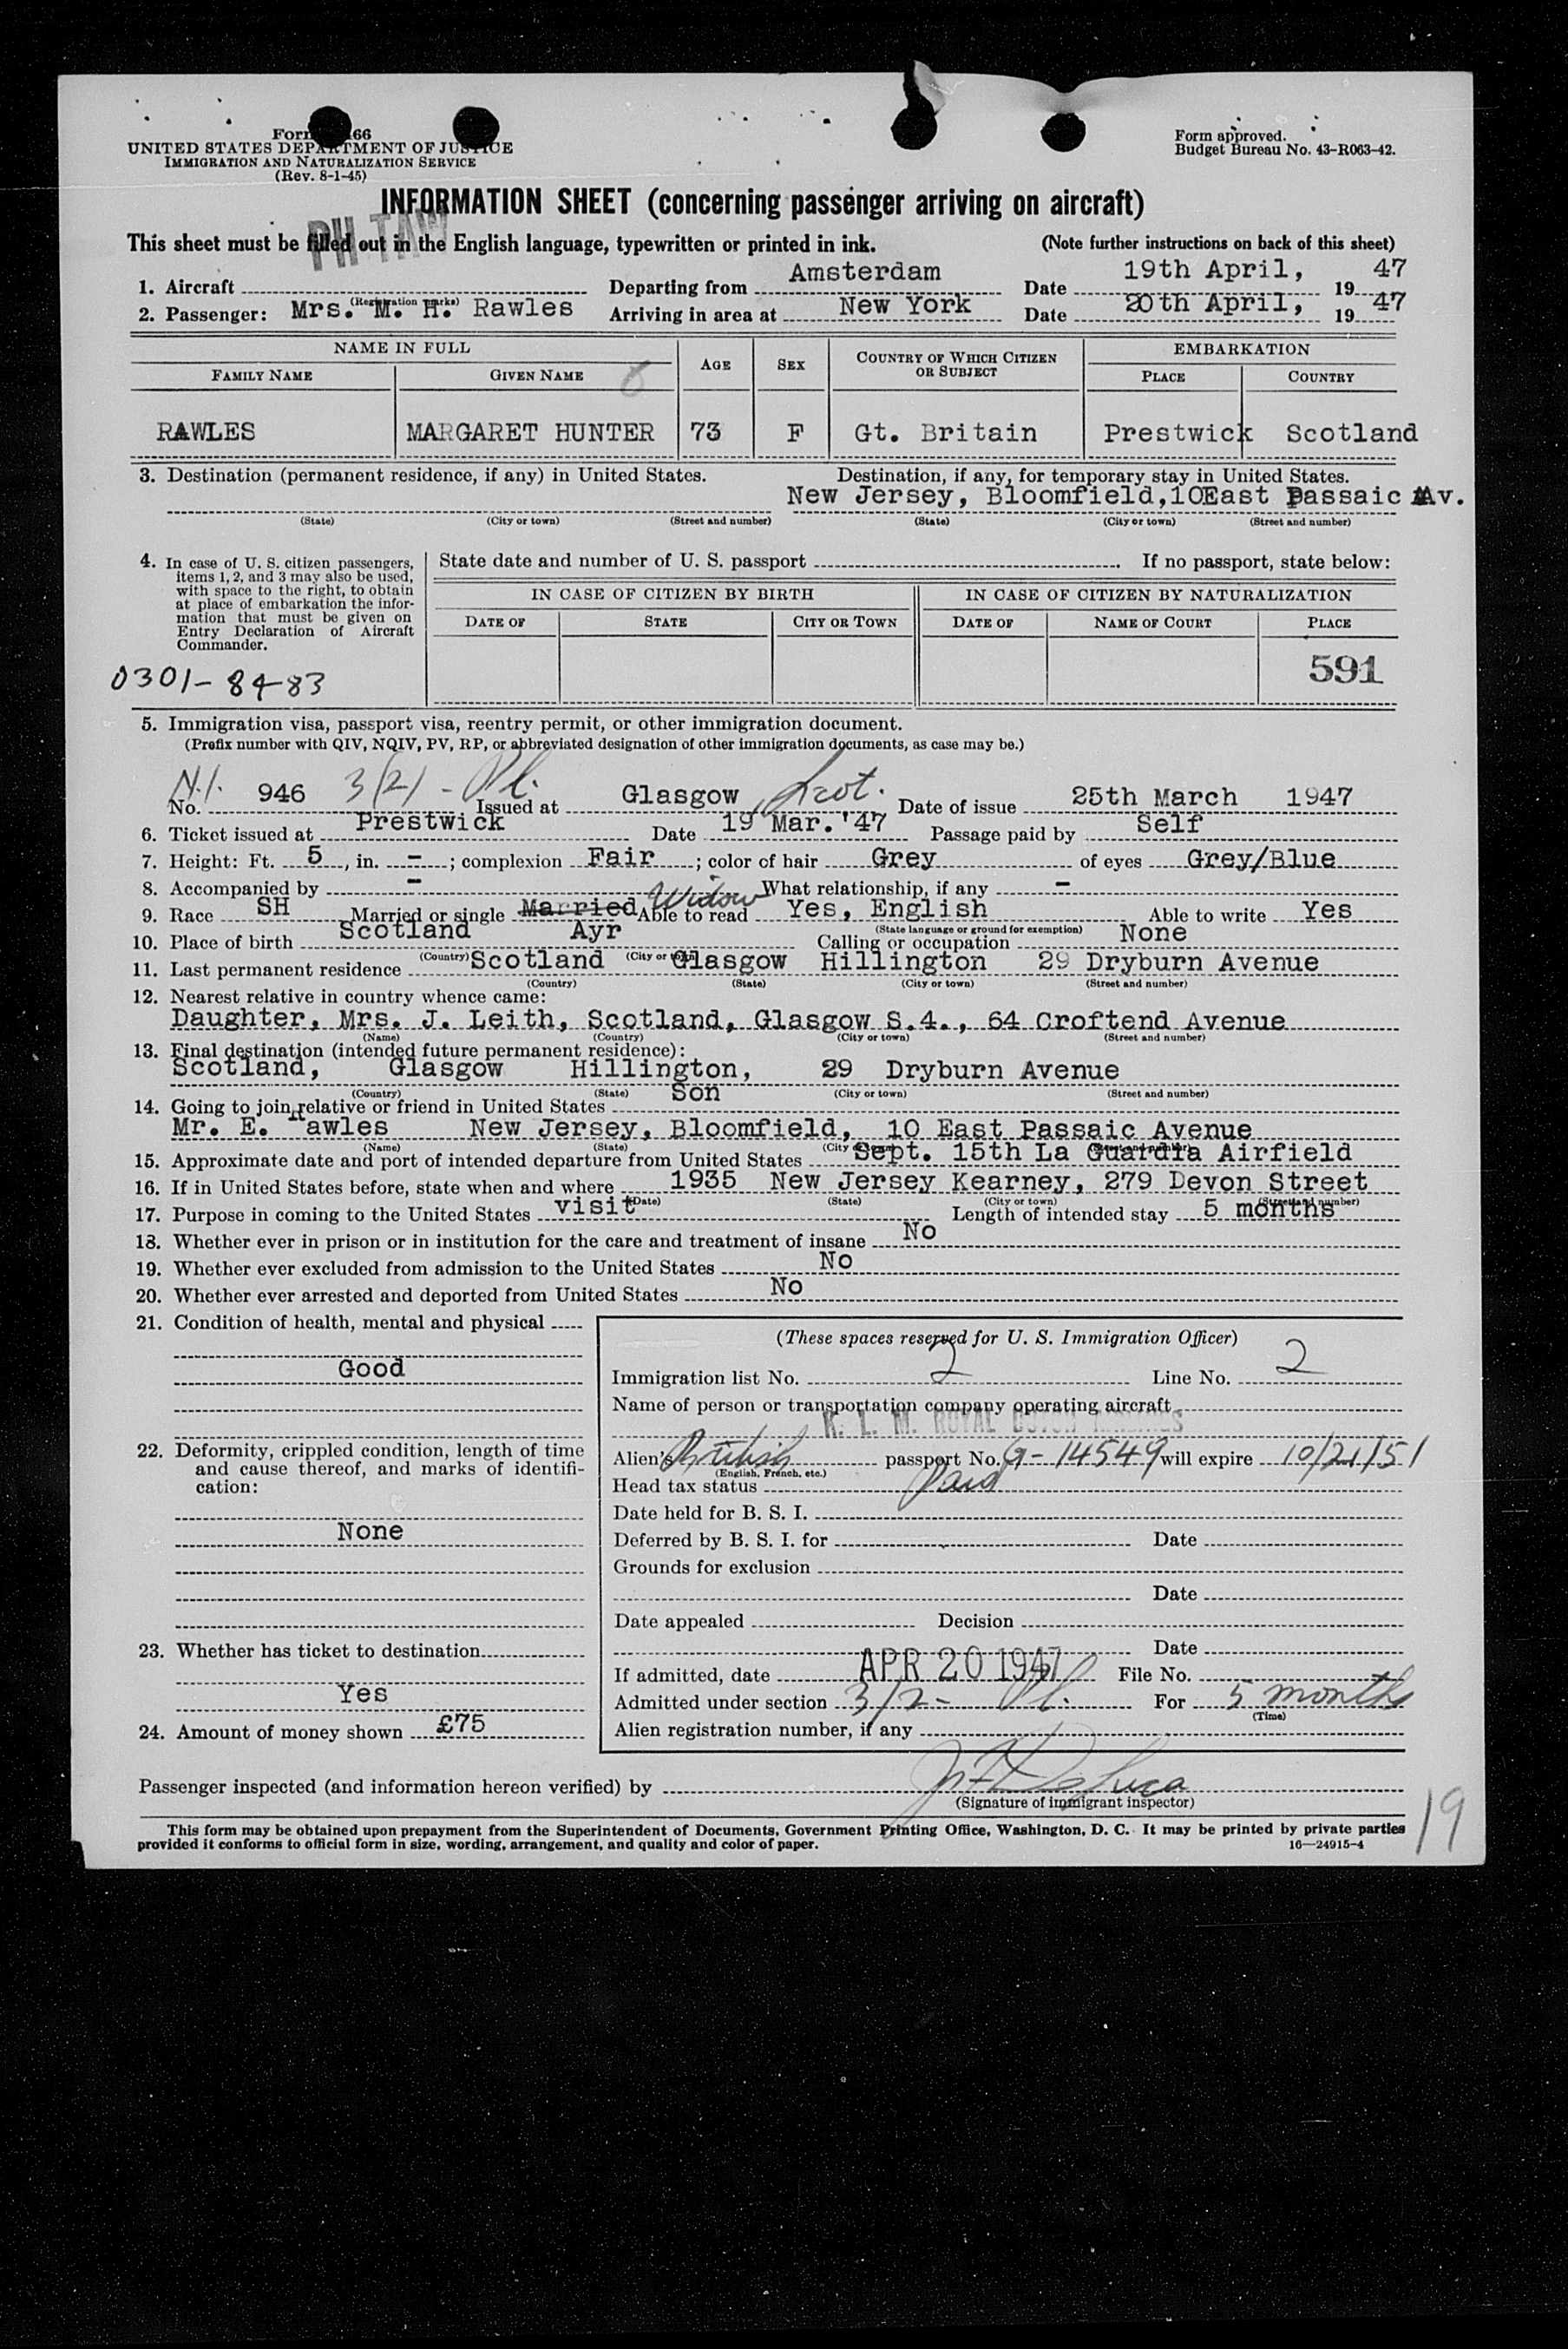 Form 66
UNITED STATES DEPARTMENT OF JUSTICE
IMMIGRATION AND NATURALIZATION SERVICE
(Rev. 8-1-45)
Form approved.
Budget Bureau No. 43-R063-42.
INFORMATION SHEET (concerning passenger arriving on aircraft)
PH TAW
This sheet must be filled out in the English language, typewritten or printed in ink. (Note further instructions on back of this sheet)
1. Aircraft (Registration marks) Departing from Amsterdam Date 19th April, 1947
2. Passenger: Mrs. M. H. Rawles Arriving in area at New York Date 20th April, 1947
NAME IN FULL AGE SEX COUNTRY OF WHICH CITIZEN OR SUBJECT EMBARKATION
FAMILY NAME GIVEN NAME PLACE COUNTRY
RAWLES MARGARET HUNTER 73 F Gt. Britain Prestwick Scotland
3. Destination (permanent residence, if any) in United States. Destination, if any, for temporary stay in United States.
New Jersey, Bloomfield, 10East Passaic Av.
(State) (City or town) (Street and number) (State) (City or town) (Street and number)
4. In case of U. S. citizen passengers, items 1, 2, and 3 may also be used, with space to the right, to obtain at place of embarkation the information that must be given on Entry Declaration of Aircraft Commander.
State date and number of U. S. passport If no passport, state below:
IN CASE OF CITIZEN BY BIRTH IN CASE OF CITIZEN BY NATURALIZATION
DATE OF STATE CITY OR TOWN DATE OF NAME OF COURT PLACE
591
0301-84-83
5. Immigration visa, passport visa, reentry permit, or other immigration document.
(Prefix number with QIV, NQIV, PV, RP, or abbreviated designation of other immigration documents, as case may be.)
No. 946 3(2) - Issued at Glasgow, Scot. Date of issue 25th March 1947
6. Ticket issued at Prestwick Date 19 Mar. '47 Passage paid by Self
7. Height: Ft. 5, in. -; complexion Fair; color of hair Grey of eyes Grey/Blue
8. Accompanied by - What relationship, if any -
9. Race SH Married or single Married Widow Able to read Yes, English Able to write Yes
(State language or ground for exemption)
10. Place of birth Scotland Ayr Calling or occupation None
(Country) (City or town)
11. Last permanent residence Scotland Glasgow Hillington 29 Dryburn Avenue
(Country) (State) (City or town) (Street and number)
12. Nearest relative in country whence came:
Daughter, Mrs. J. Leith, Scotland, Glasgow S.4., 64 Croftend Avenue
(Name) (Country) (City or town) (Street and number)
13. Final destination (intended future permanent residence):
Scotland, Glasgow Hillington, 29 Dryburn Avenue
(Country) (State) (City or town) (Street and number)
14. Going to join relative or friend in United States Son
Mr. E. Rawles New Jersey, Bloomfield, 10 East Passaic Avenue
(Name) (State) (City or town) (Street and number)
15. Approximate date and port of intended departure from United States Sept. 15th La Guardia Airfield
16. If in United States before, state when and where 1935 New Jersey Kearney, 279 Devon Street
(Date) (State) (City or town) (Street and number)
17. Purpose in coming to the United States visit Length of intended stay 5 months
18. Whether ever in prison or in institution for the care and treatment of insane No
19. Whether ever excluded from admission to the United States No
20. Whether ever arrested and deported from United States No
21. Condition of health, mental and physical
Good
22. Deformity, crippled condition, length of time and cause thereof, and marks of identification:
None
23. Whether has ticket to destination
Yes
24. Amount of money shown £75
(These spaces reserved for U. S. Immigration Officer)
Immigration list No. 2 Line No. 2
Name of person or transportation company operating aircraft
K. L. M. ROYAL DUTCH AIRLINES
Alien's British passport No. G-14549 will expire 10/21/51
(English, French, etc.)
Head tax status Paid
Date held for B. S. I.
Deferred by B. S. I. for Date
Grounds for exclusion
Date
Date appealed Decision
Date
If admitted, date APR 20 1947 File No.
Admitted under section 3/2- For 5 months
(Time)
Alien registration number, if any
Passenger inspected (and information hereon verified) by
(Signature of immigrant inspector)
This form may be obtained upon prepayment from the Superintendent of Documents, Government Printing Office, Washington, D. C. It may be printed by private parties
provided it conforms to official form in size, wording, arrangement, and quality and color of paper. 16—24915-4
19